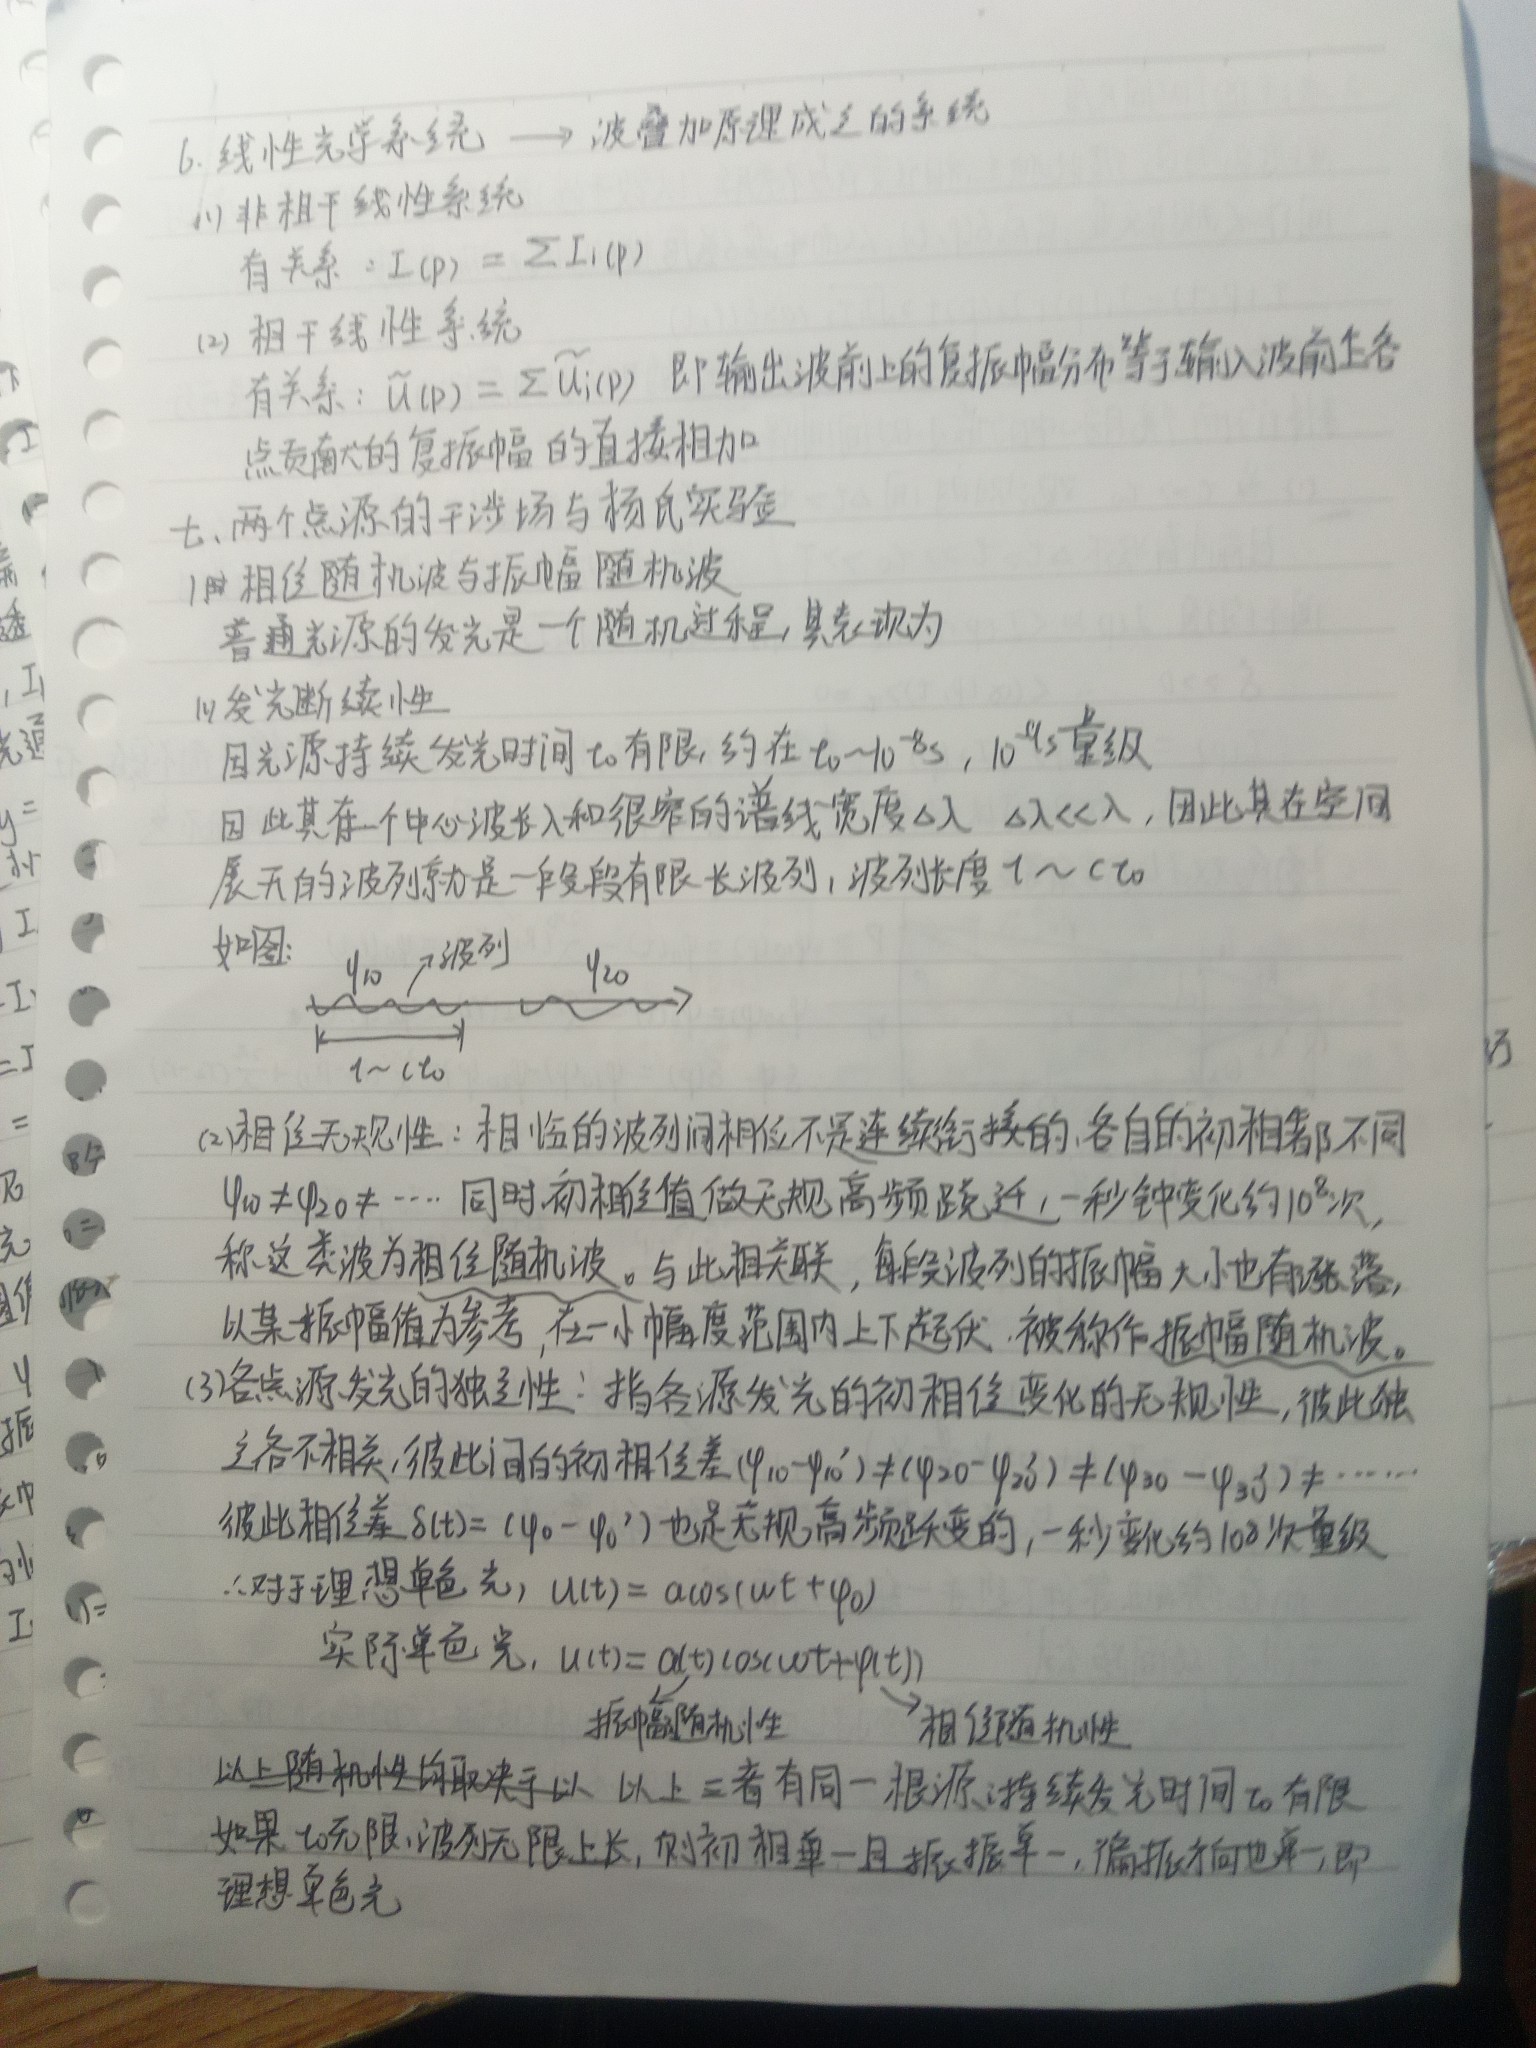 6. 线性光学系统 → 波叠加原理成立的系统
(1) 非相干线性系统
有关系：I(p) = ΣIi(p)
(2) 相干线性系统
有关系：Ũ(p) = ΣŨi(p) 即输出波前上的复振幅分布等于输入波前上各
点贡献的复振幅的直接相加
七、两个点源的干涉场与杨氏实验
1. 相位随机波与振幅随机波
普通光源的发光是一个随机过程，其表现为
(1) 发光断续性
因光源持续发光时间t₀有限，约在t₀~10⁻⁸s，10⁻⁹s量级
因此其有一个中心波长λ和很窄的谱线宽度Δλ Δλ<<λ，因此其在空间
展开的波列就是一段段有限长波列，波列长度l~ct₀
如图：
φ10 波列 φ20
l~ct₀
(2) 相位无规性：相临的波列间相位不是连续衔接的，各自的初相都不同
φ10≠φ20≠…… 同时初相位值做无规高频跳迁，一秒钟变化约10⁸次，
称这类波为相位随机波。与此相关联，每段波列的振幅大小也有涨落，
以某振幅值为参考，在一小幅度范围内上下起伏，被称作振幅随机波。
(3) 各点源发光的独立性：指各源发光的初相位变化的无规性，彼此独
立各不相关，彼此间的初相位差(φ10-φ10')≠(φ20-φ20')≠(φ30-φ30')≠……
彼此相位差δ(t)=(φ0-φ0')也是无规高频跃变的，一秒变化约10⁸次量级
∴对于理想单色光，u(t)=acos(ωt+φ0)
实际单色光，u(t)=a(t)cos(ωt+φ(t))
振幅随机性 相位随机性
以上随机性均取决于以 以上三者有同一根源：持续发光时间t₀有限
如果t₀无限，波列无限上长，则初相单一且振振单一，偏振方向也单一，即
理想单色光